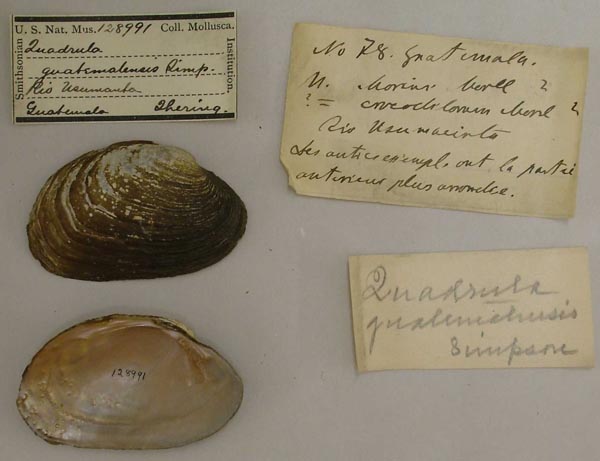 U. S. Nat. Mus. 128991 Coll. Mollusca.
Smithsonian
Institution.
Quadrula
guatemalensis Simp.
Rio Usumacinta
Guatemala Ihering.
No 78. Guatemala.
U. Morini Morll ?
? = crocodilorum Morl ?
Rio Usumacinta
Les autres exempl. ont la partie
anterieur plus arrondie.
Quadrula
guatemalensis
Simpson
128991